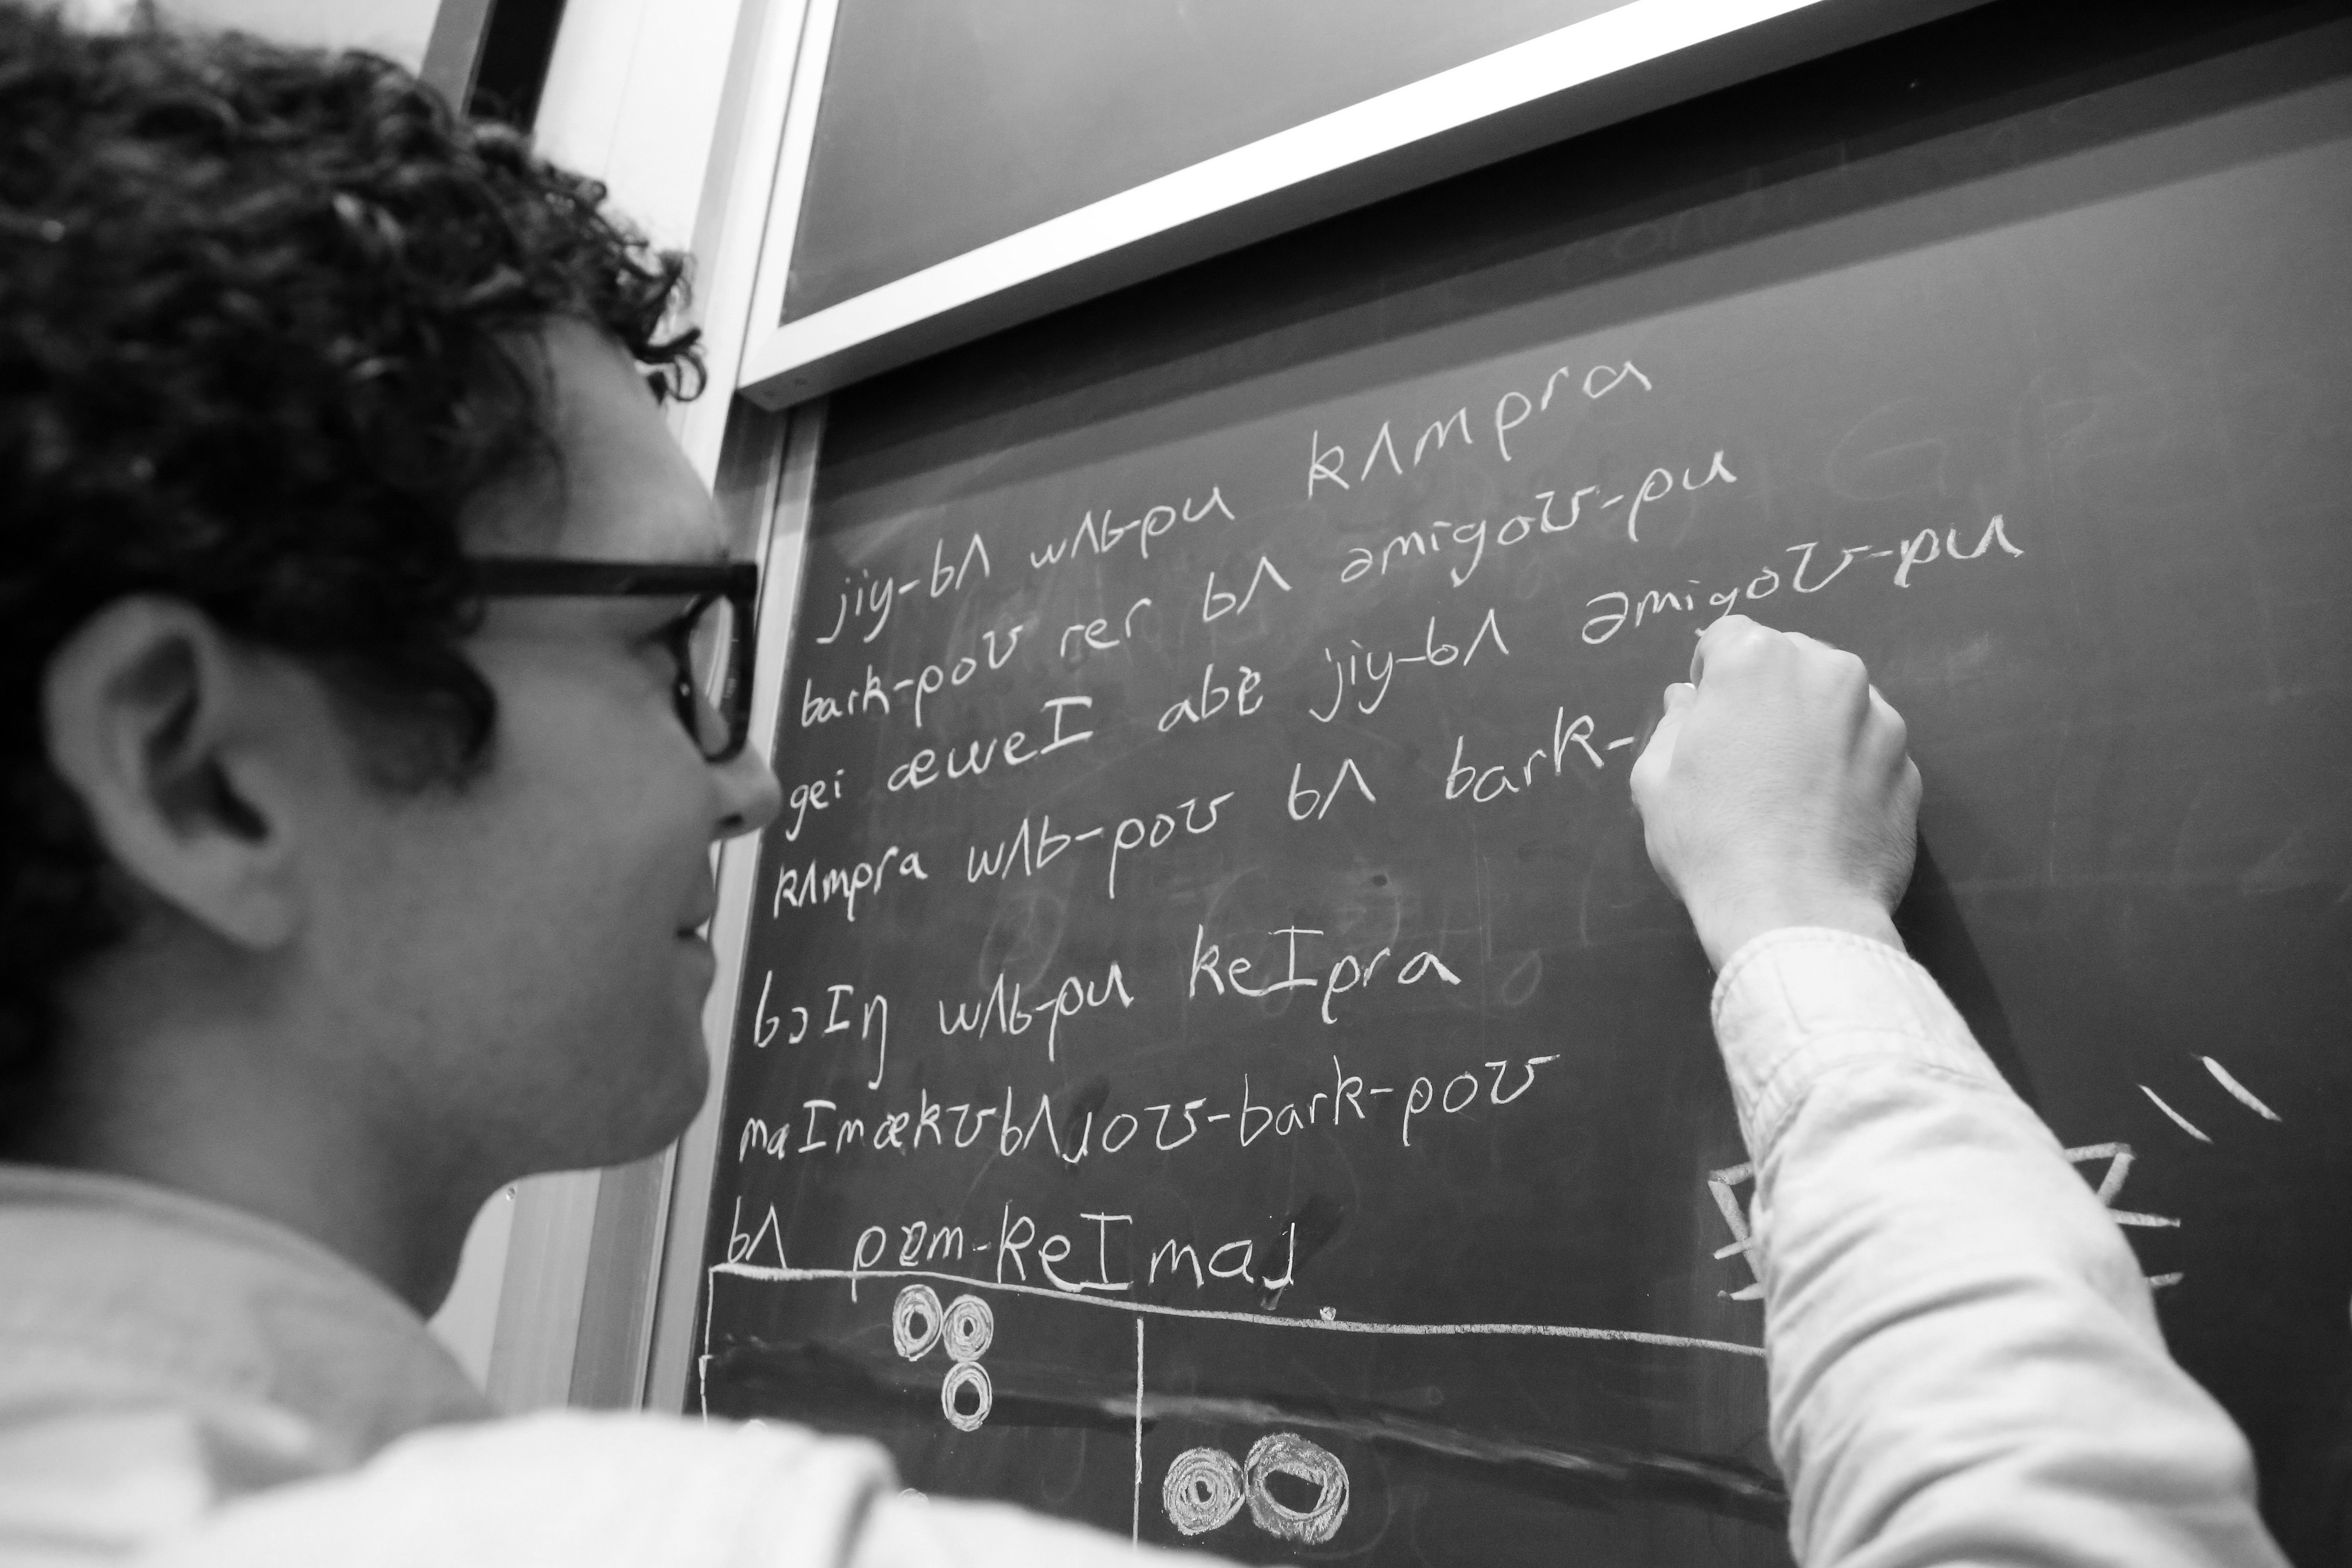 jiy-bʌ wʌb-pu kʌmpra
bark-poʊ rer bʌ əmigoʊ-pu
gei æweI abe jiy-bʌ əmigoʊ-pu
kʌmpra wʌb-poʊ bʌ bark-
bɔIŋ wʌb-pu keIpra
maImækʊbʌɹoʊ-bark-poʊ
bʌ pəm-keImaɹ